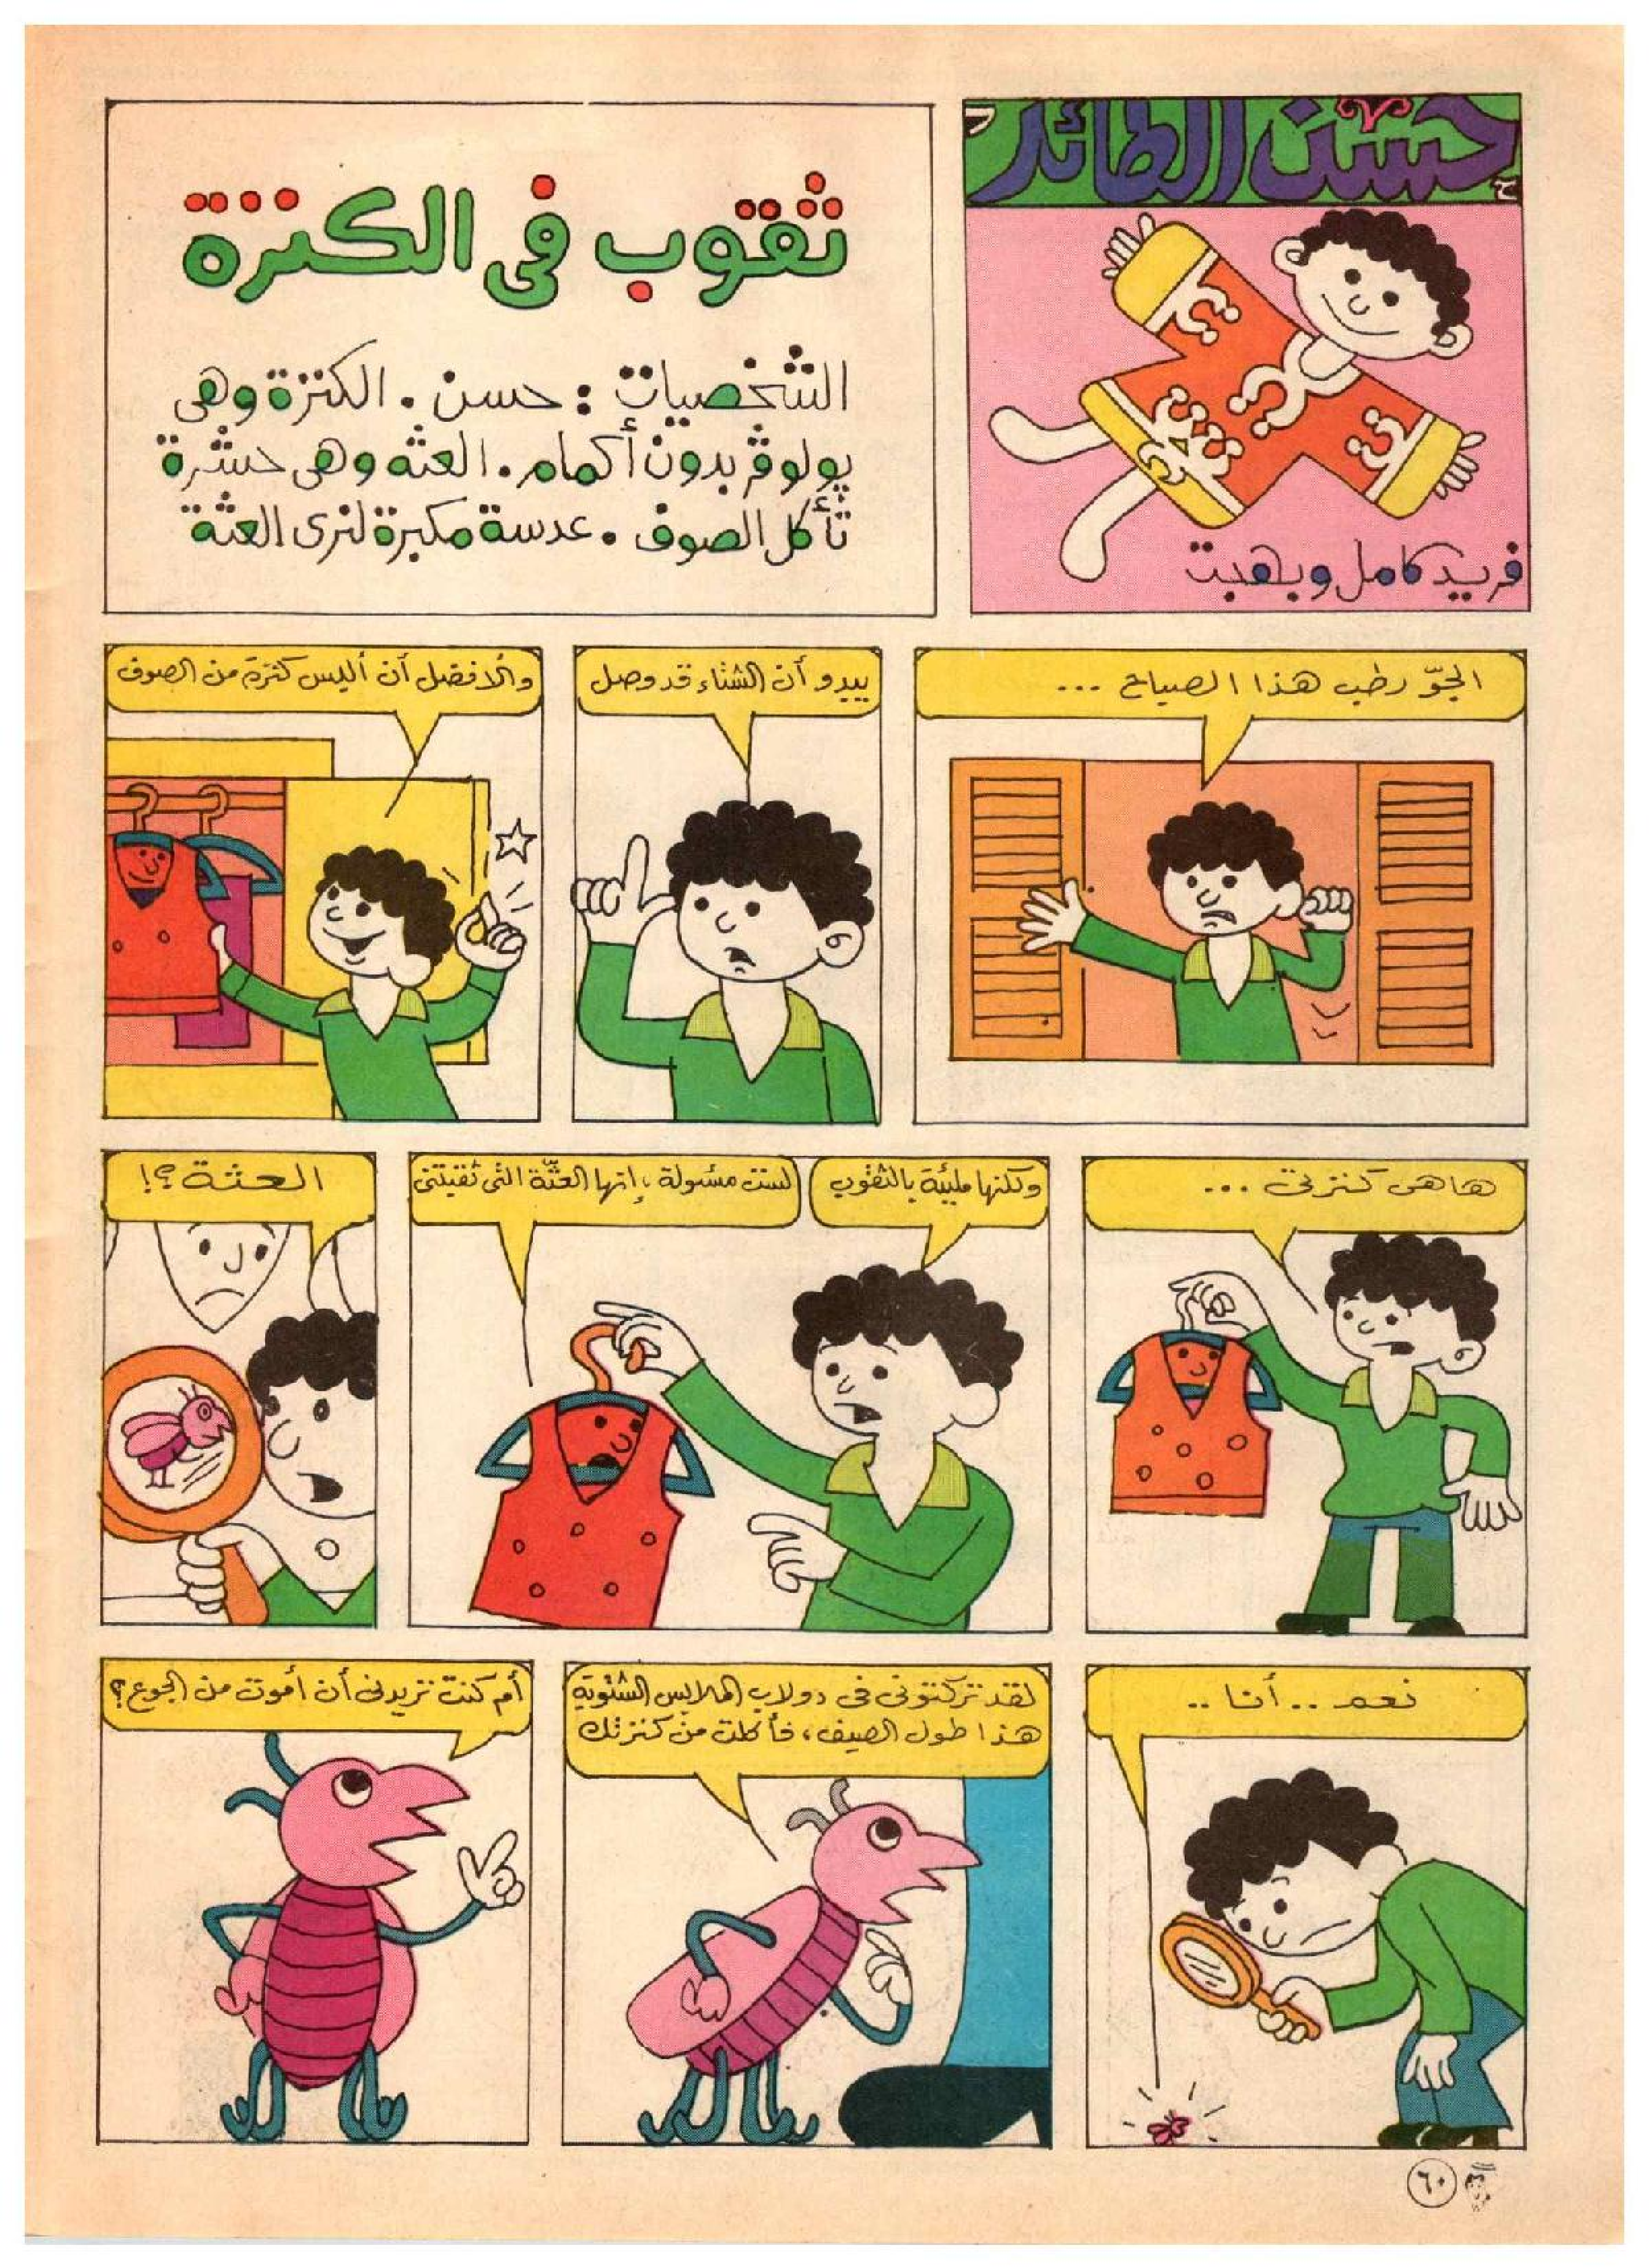 حسن الطائر
فريد كامل وبهجت
ثقوب فى الكنزة
الشخصيات : حسن . الكنزة وهى
بولوڤر بدون أكمام . العثه وهى حشرة
تأكل الصوف . عدسة مكبرة لنرى العثة
الجوّ رطب هذا الصباح ...
يبدو أن الشتاء قد وصل
والأفضل أن ألبس كنزة من الصوف
ها هى كنزتى ...
ولكنها مليئة بالثقوب
لست مسئولة ، إنها العثّة التى ثقبتنى
العثة ؟!
نعم .. أنا ..
لقد تركتونى فى دولاب الملابس الشتوية
هذا طول الصيف ، فأكلت من كنزتك
أم كنت تريدنى أن أموت من الجوع ؟
٦٠